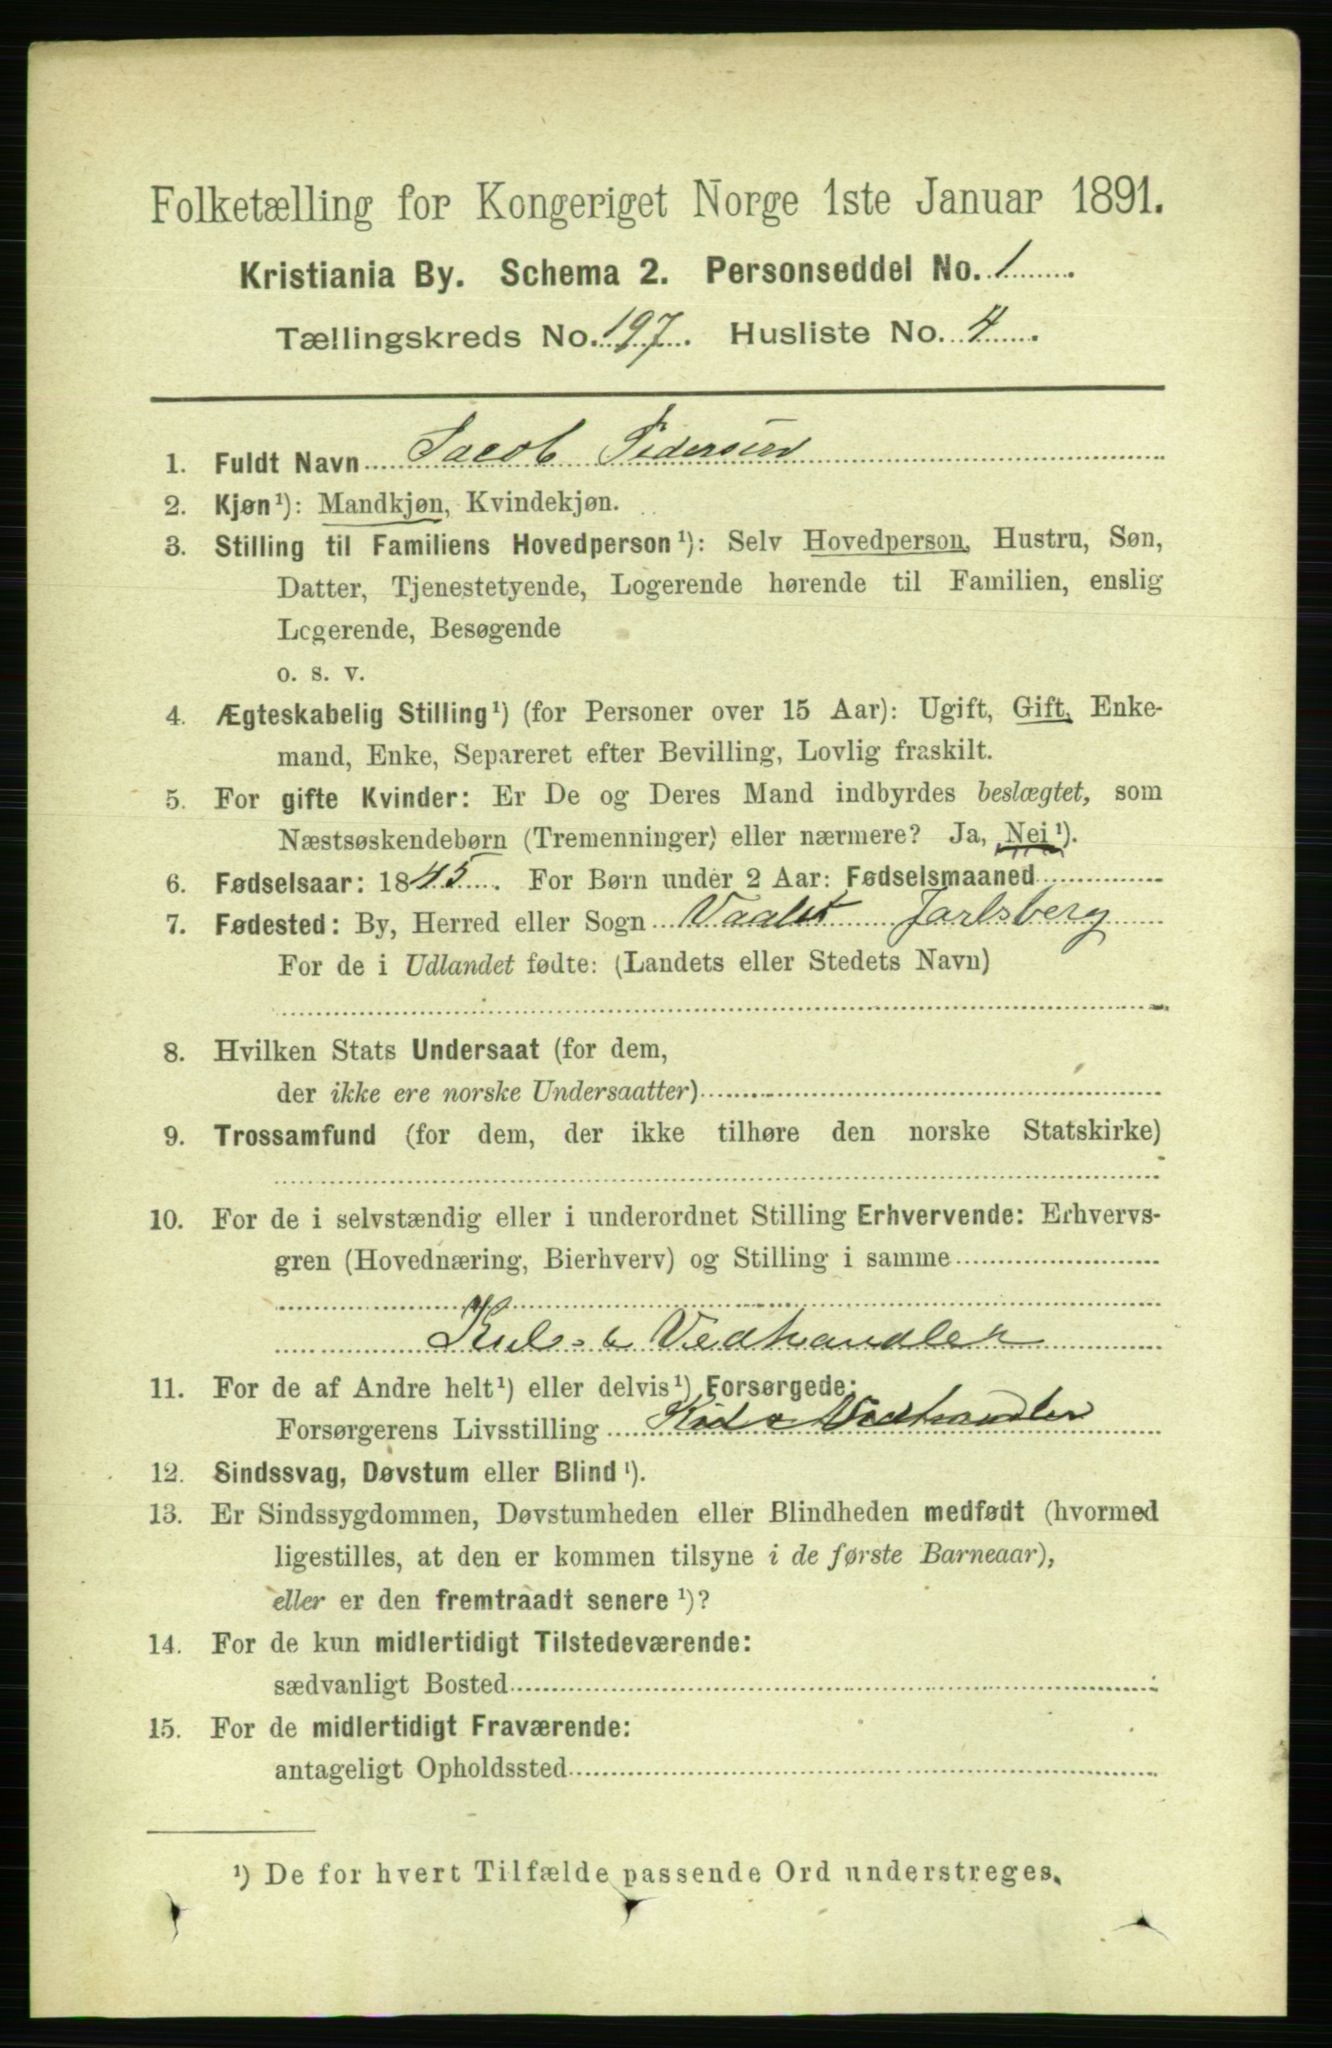 Folketælling for Kongeriget Norge 1ste Januar 1891.
Kristiania By. Schema 2. Personseddel No. 1
Tællingskreds No. 197. Husliste No. 4.
1. Fuldt Navn Jacob Pedersen
2. Kjøn¹): Mandkjøn, Kvindekjøn.
3. Stilling til Familiens Hovedperson¹): Selv Hovedperson, Hustru, Søn,
Datter, Tjenestetyende, Logerende hørende til Familien, enslig
Logerende, Besøgende
o. s. v.
4. Ægteskabelig Stilling¹) (for Personer over 15 Aar): Ugift, Gift, Enke-
mand, Enke, Separeret efter Bevilling, Lovlig fraskilt.
5. For gifte Kvinder: Er De og Deres Mand indbyrdes beslægtet, som
Næstsøskendebørn (Tremenninger) eller nærmere? Ja, Nei¹).
6. Fødselsaar: 1845. For Børn under 2 Aar: Fødselsmaaned
7. Fødested: By, Herred eller Sogn Jarlsberg
For de i Udlandet fødte: (Landets eller Stedets Navn)
8. Hvilken Stats Undersaat (for dem,
der ikke ere norske Undersaatter)
9. Trossamfund (for dem, der ikke tilhøre den norske Statskirke)
10. For de i selvstændig eller i underordnet Stilling Erhvervende: Erhvervs-
gren (Hovednæring, Bierhverv) og Stilling i samme
Kul- & Vedhandler
11. For de af Andre helt¹) eller delvis¹) Forsørgede:
Forsørgerens Livsstilling Vedhandler
12. Sindssvag, Døvstum eller Blind¹).
13. Er Sindssygdommen, Døvstumheden eller Blindheden medfødt (hvormed
ligestilles, at den er kommen tilsyne i de første Barneaar),
eller er den fremtraadt senere¹)?
14. For de kun midlertidigt Tilstedeværende:
sædvanligt Bosted
15. For de midlertidigt Fraværende:
antageligt Opholdssted
¹) De for hvert Tilfælde passende Ord understreges.